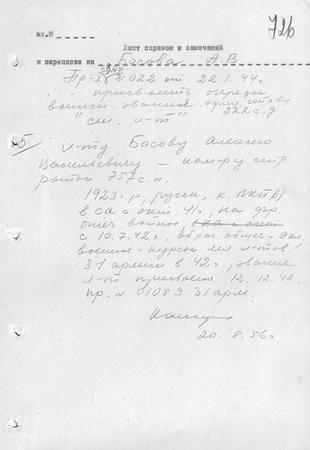 726
вх.№
Лист справок и замечаний
к переписке на Басова А.В
Пр- № 022 от 22.1.44г.
присвоить очеред.
воинск. звание офиц. составу
"ст. л-т" 222 с.д
5 л-ту Басову Алексею
Васильевичу – ком-ру стр
роты 757 с.п.
1923 г.р, русск, к. ВКП(б)
в СА с окт. 41г, на фр.
отеч. войны
с 10.7.42г, образ. общее - 9 кл
военное - курсы мл л-тов
31 армии в 42г, звание
л-т присвоено 12.12.42
пр. № 01089 31 арм.
20.8.56г